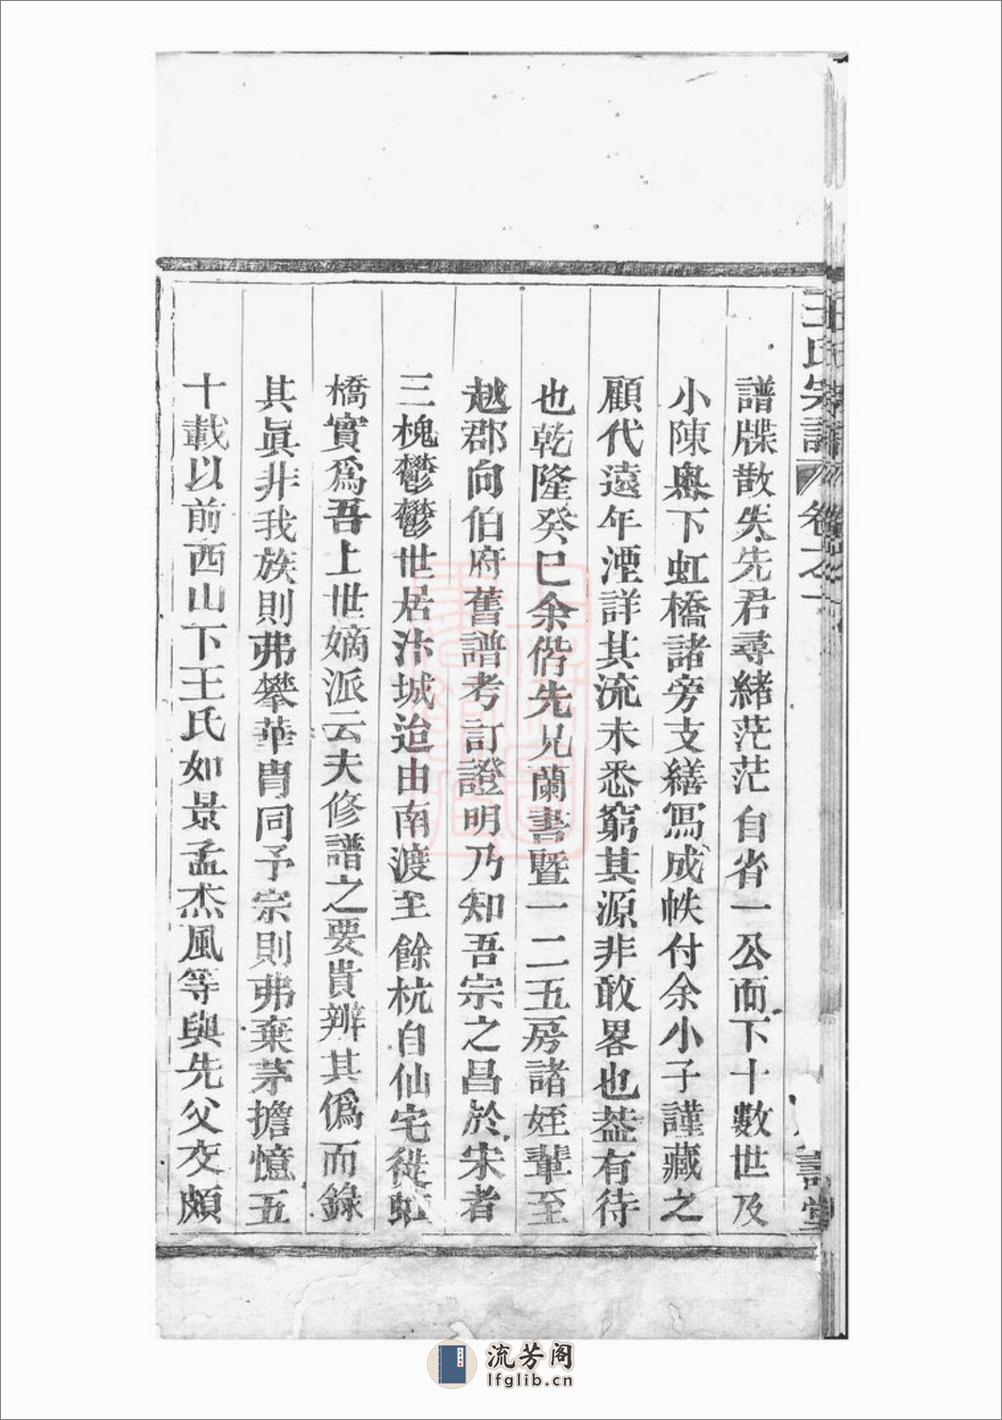 王氏宗譜 卷之一
譜牒散失先君尋緒茫茫自省一公而下十數世及
小陳奧下虹橋諸旁支繕寫成帙付余小子謹藏之
顧代遠年湮詳其流未悉窮其源非敢畧也葢有待
也乾隆癸巳余偕先兄蘭書暨一二五房諸姪輩至
越郡向伯府舊譜考訂證明乃知吾宗之昌於宋者
三槐鬱鬱世居汴城迨由南渡至餘杭自仙宅徙虹
橋實爲吾上世嫡派云夫修譜之要貴辨其僞而錄
其眞非我族則弗攀華胄同予宗則弗棄茅擔憶五
十載以前西山下王氏如景孟杰風等與先父交頗
流芳阁
lfglib.cn